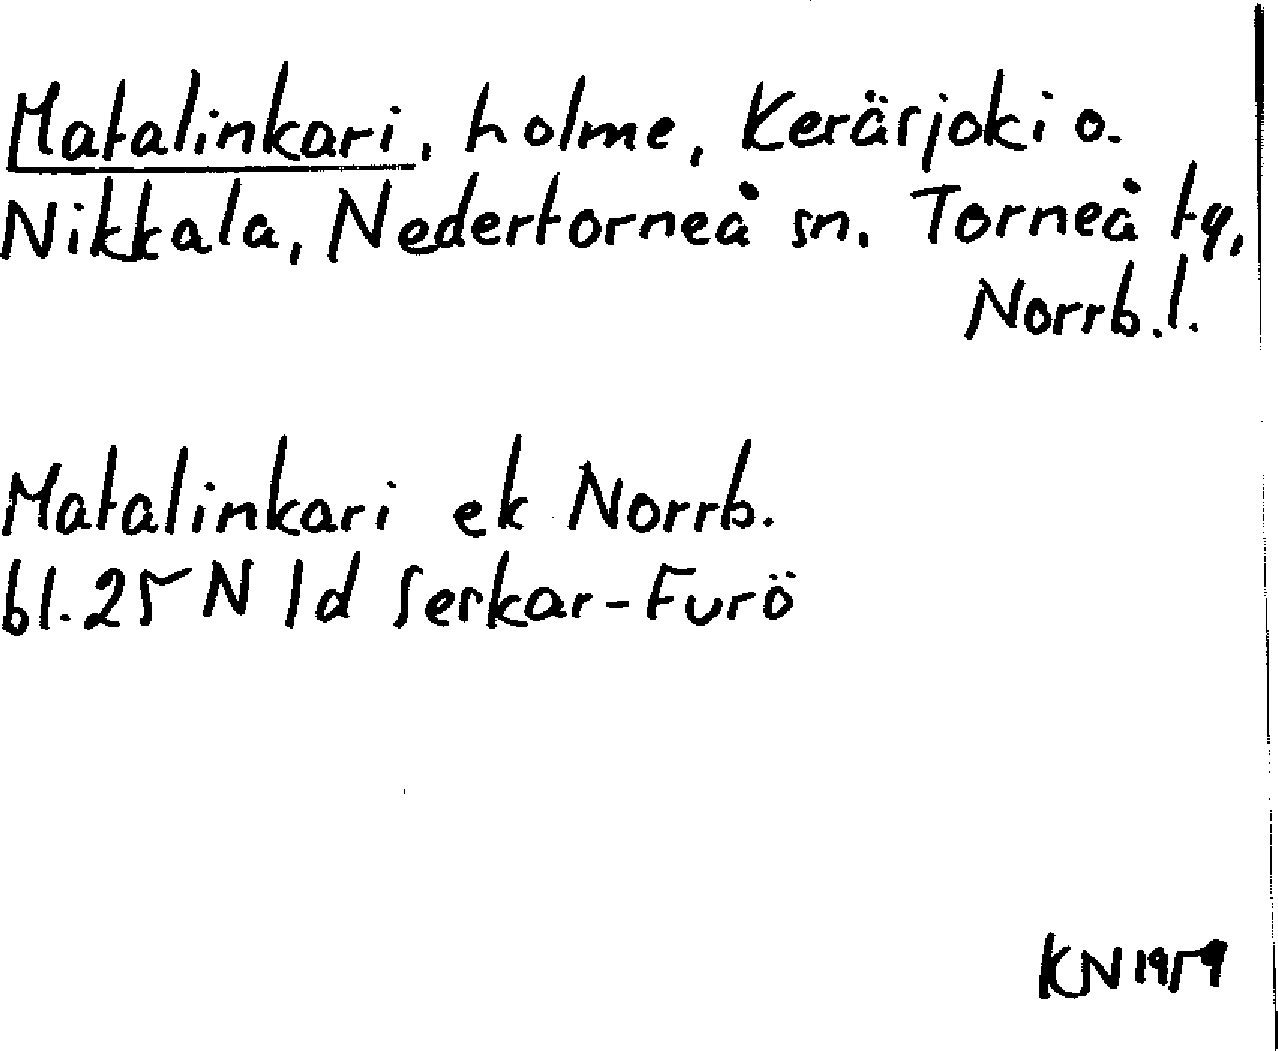 Matalinkari, holme, Keräsjoki o.
Nikkala, Nedertorneå sn. Torneå tg,
Norrb.l.
Matalinkari ek Norrb.
bl. 25 N ld Seskar-Furö
KN 1959